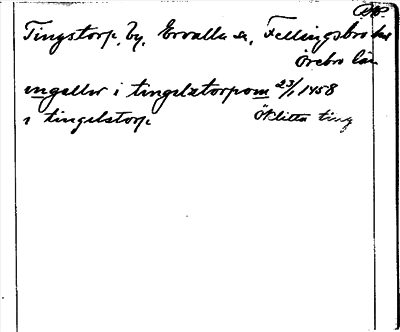 Tingstorp, by, Ervalla sn, Fellingsbro hd
Örebro län
ingeller i tingelstorpom 23/1 1458
i tingelstorp
ting